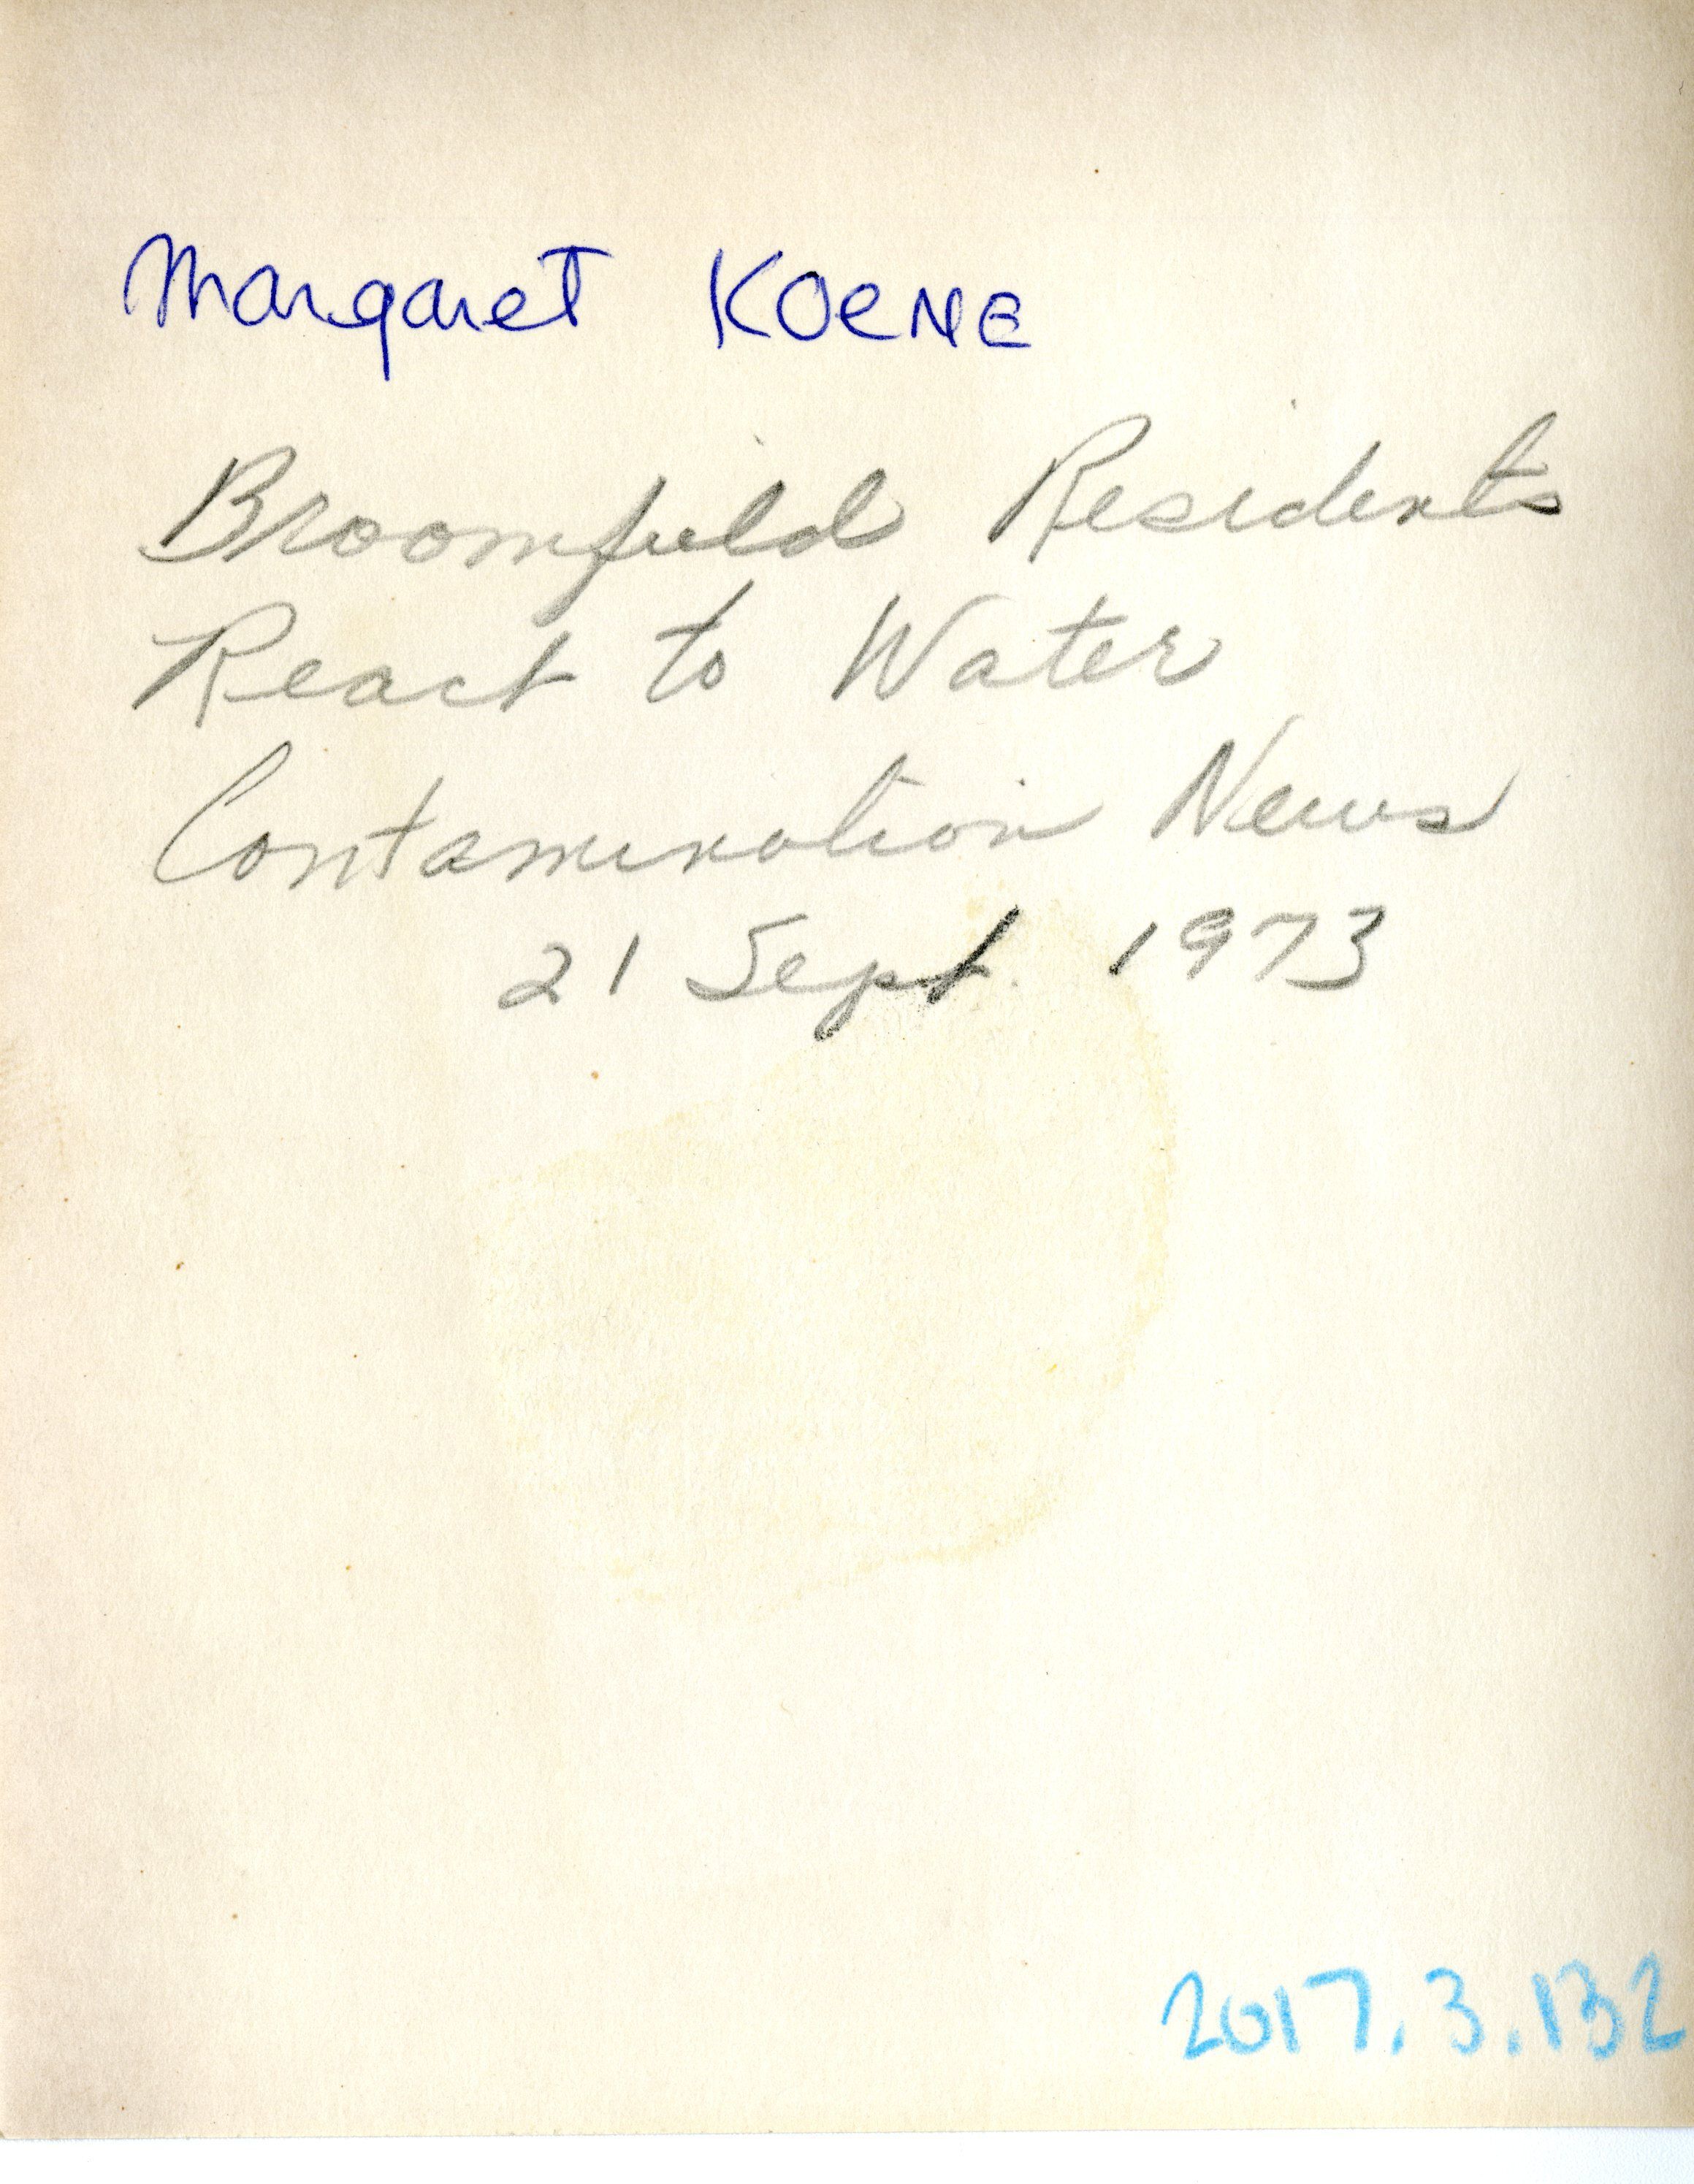 Margaret KOENE
Broomfield Residents
React to Water
Contamination News
21 Sept. 1973
2017.3.132